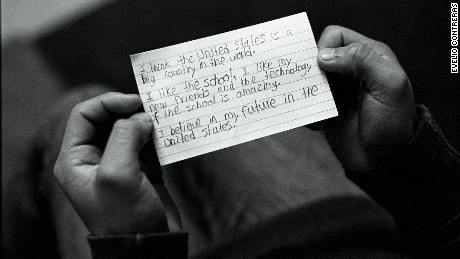 I think the United States is a
big country in the world.
I like the school, I like my
new friends and the technology
of the school is amazing.
I believe in my future in the
United States.
EVELIO CONTRERAS